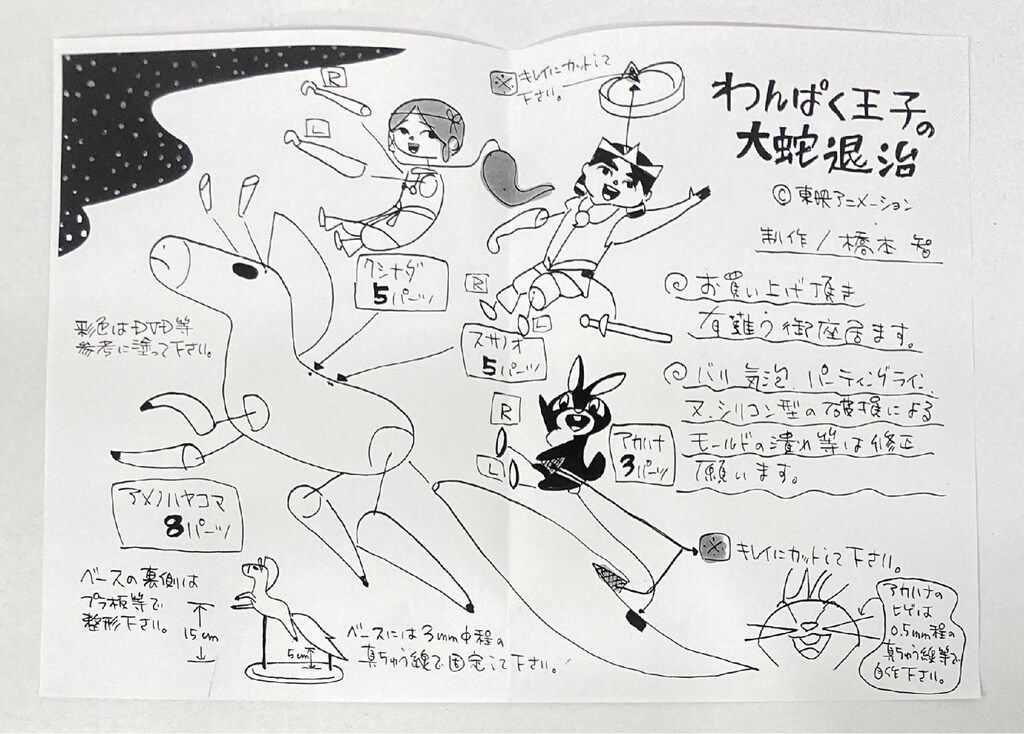 わんぱく王子の
大蛇退治
©東映アニメーション
制作/橋本 智
お買い上げ頂き
有難う御座居ます。
バリ、気泡、パーティングライン、
又、シリコン型の破損による
モールドの潰れ等は修正
願います。
※キレイにカットして
下さい。
R
L
クシナダ
5パーツ
R
L
スサノオ
5パーツ
彩色はDVD等
参考に塗って下さい。
R
L
アカハナ
3パーツ
アメノハヤコマ
8パーツ
※キレイにカットして下さい。
ベースの裏側は
プラ板等で
整形下さい。
15cm
5cm
ベースには3mmφ程の
真ちゅう線で固定して下さい。
アカハナの
ヒゲは
0.5mm程の
真ちゅう線等で
自作下さい。